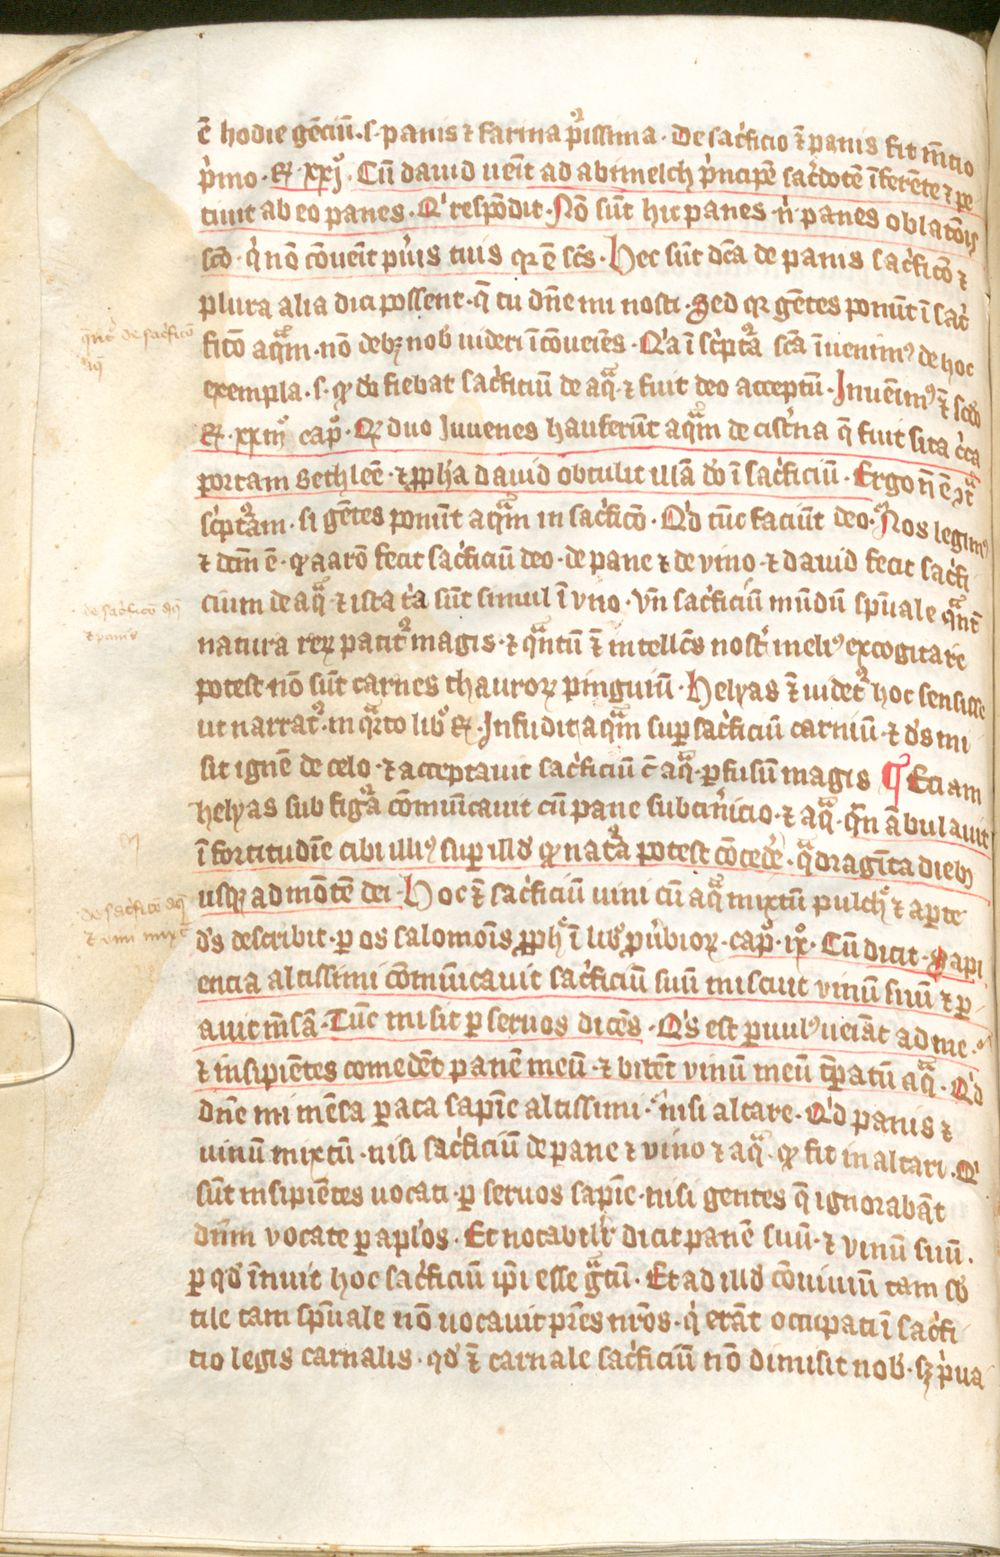 ē hodie gēciū · s · panis ⁊ farina p̄issima · De sac̓ficio ē panis fit m̄tio
p̓mo · R̄ · xxj° · Cū dauid ueīt ad abimelch p̓ncipē sac̓dotē īferētē ⁊ pe
tiuit ab eo panes · Q' respōdit · Nō sūt hic panes n̓ panes oblatōīs
sc̄o · q̓ nō cōueīt pu̓is tuis qꝛ ē sc̄s · Hec sūt dc̄a de panis sac̓ficō ⁊
plura alia dici possent · q̄ tu dn̄e mi nosti · Sed qꝛ gētes ponūt ī sac̓
ficō aqᵃm · nō debꝫ nob̓ uideri īcōueīēs · Q'a ī sc̓ptᵃ sc̄a īuenim⁹ de hoc
exempla · s · ꝙ do̓ fiebat sac̓ficiū de aqᵃ · ⁊ fuit deo acceptū · Inuēim⁹ ē sc̄do
R̄ · xxiij° cap° · Qꝛ duo Iuuenes hauserūt aqᵃm de cist̓na q̄ fuit sita c̓ca
portam Bethleē · ⁊ ꝓph̄a dauid obtulit illā do̓ ī sac̓ficiū · Ergo n̄ ē ↄt̄ᵃ
sc̓ptᵃam · si gētes ponūt aqᵃm in sac̓ficō · Q'd tūc faciūt deo · Nos legim⁹
⁊ dc̄m ē · ꝙ aarō fecit sac̓ficiū deo · de pane ⁊ de vino · ⁊ dauid fecit sac̓fi
cium de aqᵃ ⁊ ista t̓a sūt simul ī vno · Vn̄ sac̓ficiū mūdū sp̄uale qᵃnt̄
natura reꝝ patit᷒ magis · ⁊ qᵃntū ē intellc̄s nost̓ meli⁹ excogitare
potest nō sūt carnes thauroꝝ pinguiū · Helyas ē uidet᷒ hoc sensisse
ut narrat᷒ · in qᵃrto lib° R̄ · Infudit aqᵃm sup̄ sac̓ficiū carniū · ⁊ d̓s mi
sit ignē de celo · ⁊ acceptauit sac̓ficiū c̄ aqᵃ · ꝑfusū magis ¶ Eciam
helyas sub figᵃ cōmuīcauit cū pane subcin̓icio · ⁊ aqᵃ · Qn̄ ābulauit
ī fortitudīe cibi illi⁹ sup̄ ill̓d ꝙ nat᷒a potest cōcede̓ · qᵃdragīta diebꝫ
usqꝫ ad mōtē dei · Hoc ē sac̓ficiū uini cū aqᵃ mixtū pulch̓ ⁊ ap̄te
d̓s describit · ꝑ os salomōīs ꝓph̓ ī lib̓ ꝓu̓bioꝝ · cap° · ix° · Cū dicit · Sapi
encia altissimi cōmūīcauit sac̓ficiū suū miscuit vinū suū ⁊ p̄
auit m̄sā · Tūc misit ꝑ seruos dicēs · Q's est puul⁹ ueīāt ad me ·
⁊ insipiētes comedēt panē meū · ⁊ bibēt vinū meū tp̄atū aqᵃ · Q'd
dn̄e mi mēsa ꝑata sapīe altissimi · nisi altare · Q'd panis ⁊
uinū mixtū · nisi sac̓ficiū de pane ⁊ vino ⁊ aqᵃ · ꝙ fit in altari · Q'
sūt insipiētes uocati · ꝑ seruos sapīe · nisi gentes q̄ ignorabāt
dn̄m vocate ꝑ apl̓os · Et notabil̓r dicit panē suū · ⁊ vinū suū ·
ꝑ qd̓ īnuit hoc sac̓ficiū ip̄i esse gᵃtū · Et ad ill̓d cōuiuiū tam sb̓
tile tam sp̄uale nō uocauit pr̄es nr̄os · q̓ erāt occupati ī sac̓fi
cio legis carnalis · qd̓ ē carnale sac̓ficiū nō dimisit nob̓ · sꝫ p̓ua
de sac̓ficō aq̄
⁊ panis
de sac̓ficō aq̄
⁊ vini mixt̄